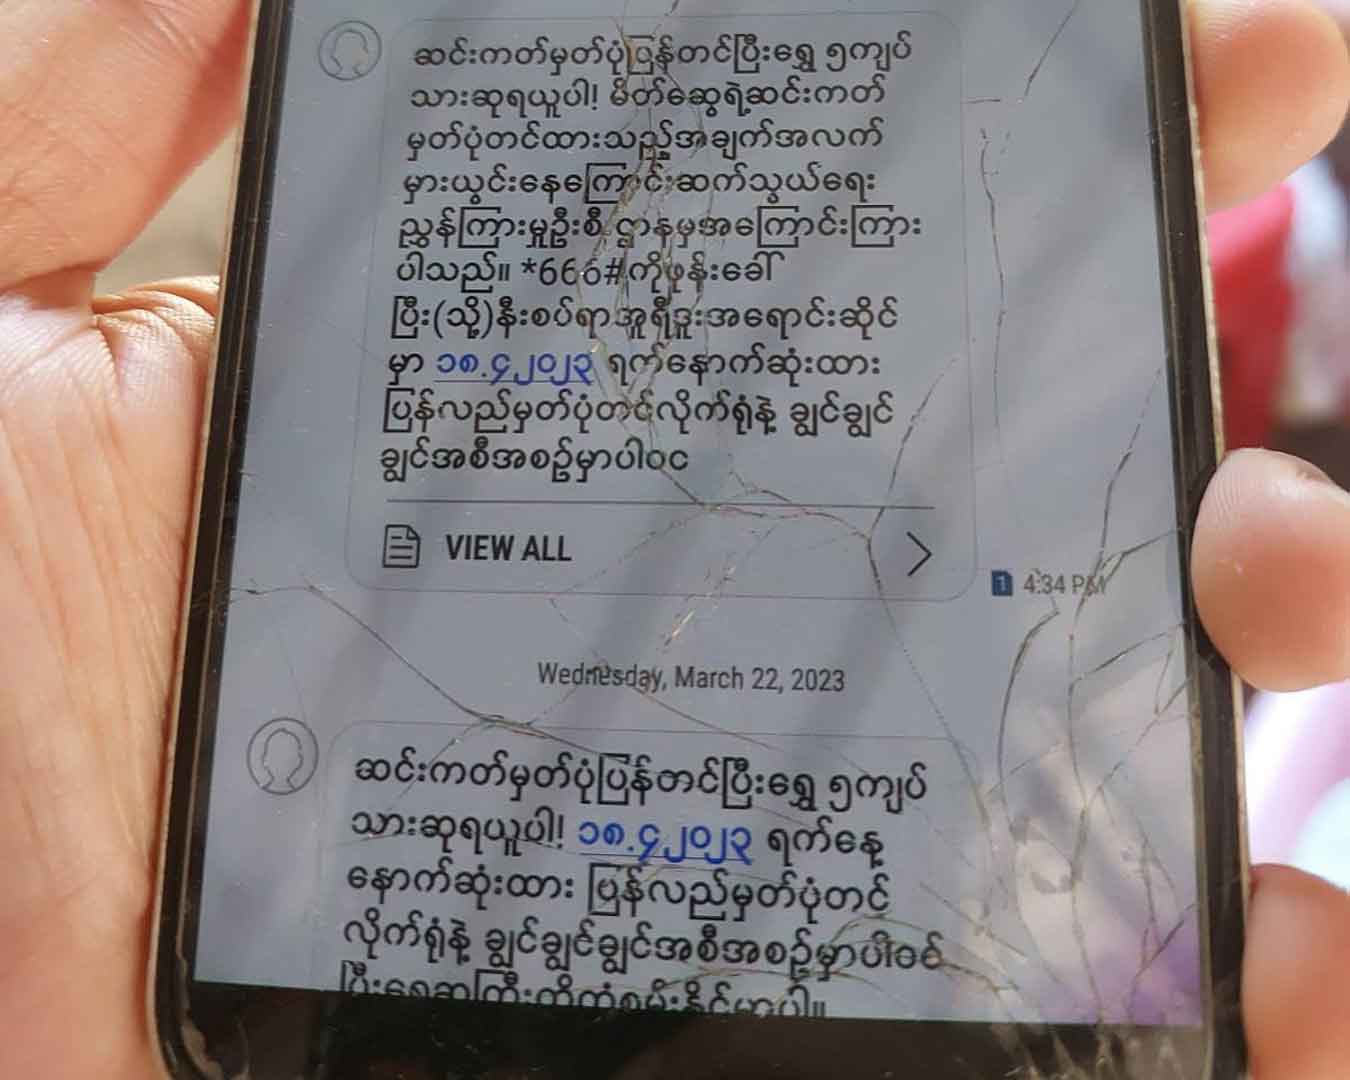 ဆင်းကတ်မှတ်ပုံပြန်တင်ပြီးရွှေ ၅ကျပ်
သားဆုရယူပါ! မိတ်ဆွေရဲ့ဆင်းကတ်
မှတ်ပုံတင်ထားသည့်အချက်အလက်
မှားယွင်းနေကြောင်းဆက်သွယ်ရေး
ညွှန်ကြားမှုဦးစီးဌာနမှအကြောင်းကြား
ပါသည်။ *666#ကိုဖုန်းခေါ်
ပြီး(သို့)နီးစပ်ရာအူရီဒူးအရောင်းဆိုင်
မှာ ၁၈.၄၂၀၂၃ ရက်နောက်ဆုံးထား
ပြန်လည်မှတ်ပုံတင်လိုက်ရုံနဲ့ ချွင်ချွင်
ချွင်အစီအစဥ်မှာပါဝင
VIEW ALL
1 4:34 PM
Wednesday, March 22, 2023
ဆင်းကတ်မှတ်ပုံပြန်တင်ပြီးရွှေ ၅ကျပ်
သားဆုရယူပါ! ၁၈.၄၂၀၂၃ ရက်နေ့
နောက်ဆုံးထား ပြန်လည်မှတ်ပုံတင်
လိုက်ရုံနဲ့ ချွင်ချွင်ချွင်အစီအစဥ်မှာပါဝင်